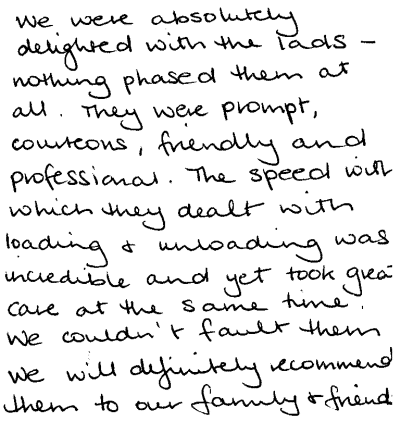 We were absolutely
delighted with the lads –
nothing phased them at
all. They were prompt,
courteous, friendly and
professional. The speed with
which they dealt with
loading & unloading was
incredible and yet took grea
care at the same time.
We couldn't fault them
We will definitely recommend
them to our family & friend